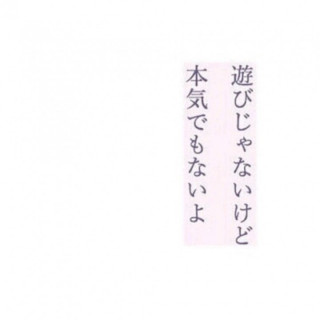 遊びじゃないけど
本気でもないよ